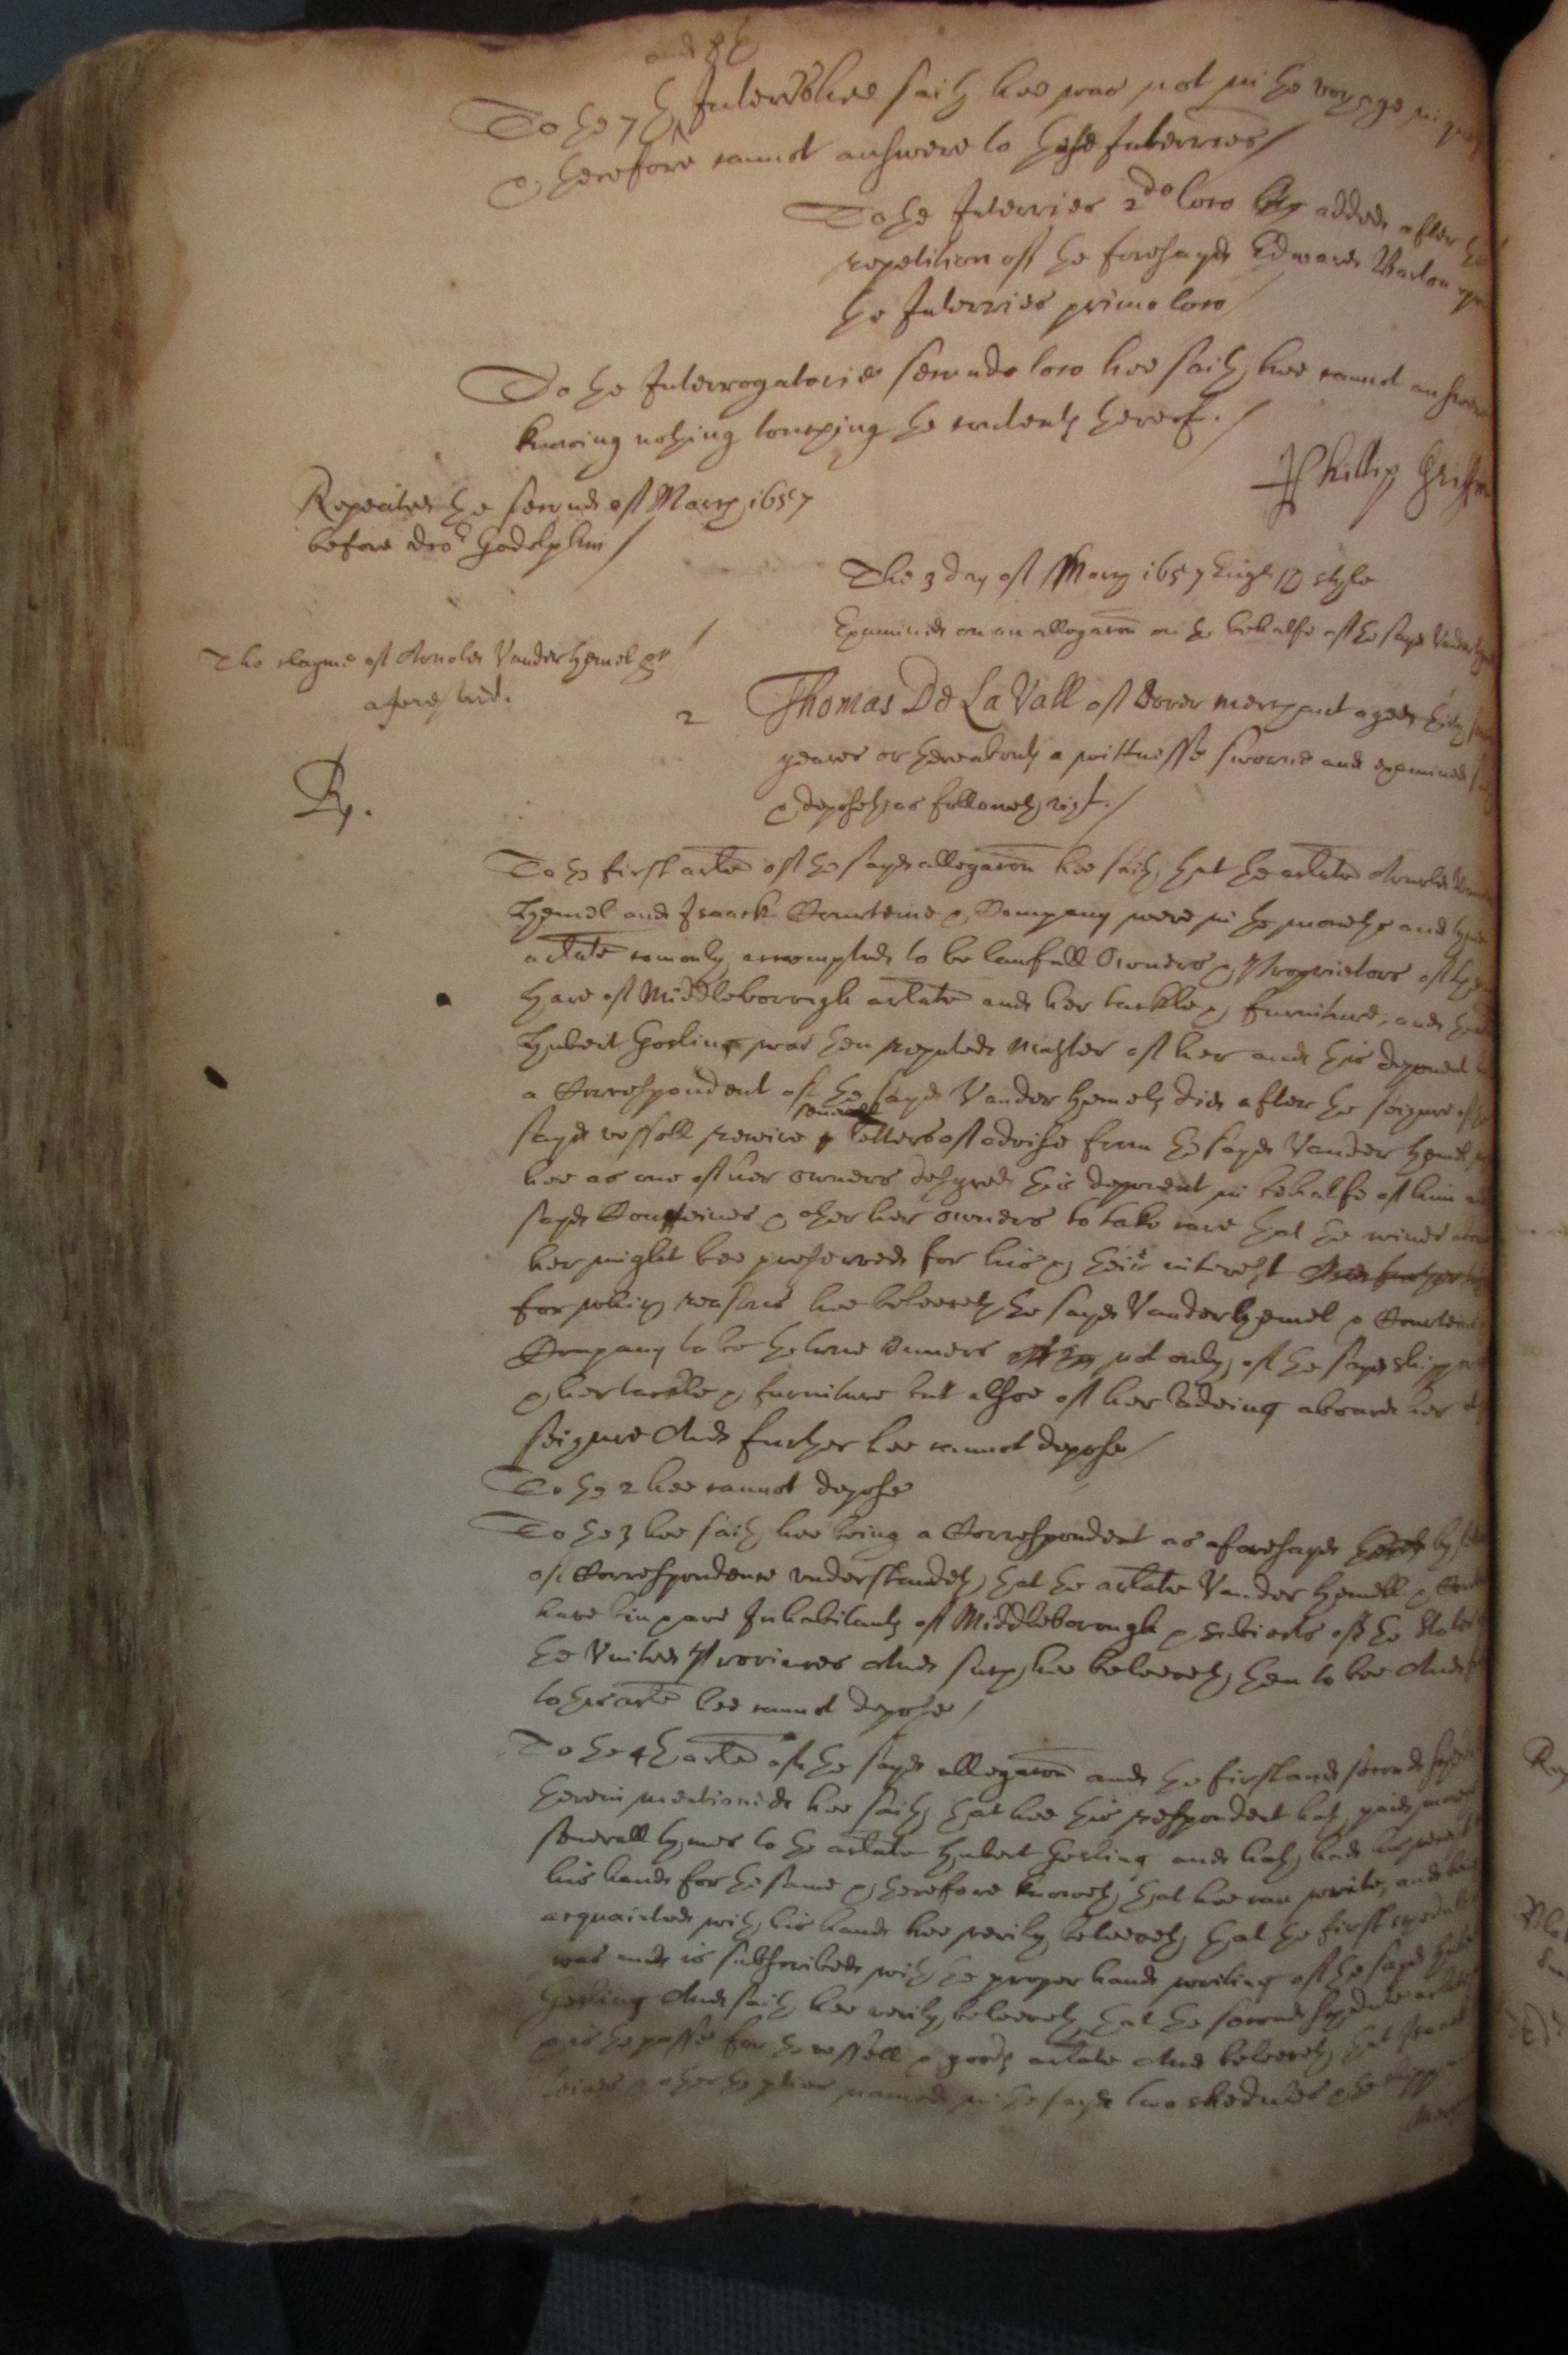 and 8th
To the 7th Interrie hee saith hee was not in the voyage in
& therefore cannot answere to these Interries/
To the Interries 2do loco added after
repetition of the foresayd Edward Barton
the Interries primo loco/
To the Interrogatorie secundo loco hee saith hee cannot answere
knowing nothing touching the contents thereof./
Phillip Griffin
Repeated the second of March 1657
before Dor Godolphin/
The 3 day of March 1657 English style
Examined on an allegacon on the behalfe of the sayd Vander
The clayme of Arnoldt Vander Hemel &c/
aforesaid.
Rp.
2 Thomas De La Vall of Dover merchant aged thirty
yeares or thereabouts a wittnesse sworne and examined
& deposeth as followeth vizt./
To the first arte of the sayd allegacon hee saith, that the arlate Arnoldt Vander
Hemel and Isaack Courteine & Company were in the moneths and tyme
arlate comonly accompted to be lawfull Owners & Proprietors of the
Hare of Middleborrogh arlate and her tackle & furniture, and that
Hubert Gosling was then reputed Master of her and this deponent
a Correspondent of the sayd Vander Hemels did after the seizure of the
sayd vessell receive severall letters of advise from the sayd Vander Hemel
hee as one of her owners desyred this deponent in behalfe of him
sayd Courteines & other her owners to take care that the wines
her might bee preserved for his & their interest
for which reasons hee beleeveth the sayd Vander Hemel & Courteine
Company to be the true Owners not only of the sayd shipp
& her tackle & furniture but alsoe of her ladeing aboard her
seizure And further hee cannot depose/
To the 2 hee cannot depose
To the 3 hee saith hee being a Correspondent as aforesayd by
of Correspondence understandeth, that the arlate Vander Hemell &
have bin & are Inhabitants of Middleborough & subiects of the States
the United Provinces And such hee beleeveth them to bee And
to this arte hee cannot depose/
To the 4th arte of the sayd allegacon and the first and second
therein mentioned hee saith that hee this respondent hath paid
severall tymes to the arlate Hubert Gosling and hath had
his hand for the same & therefore knoweth that hee can write, and
acquainted with his hand hee verily beleeveth that the first schedule
was and is subscribed with the proper hand writing of the sayd
Gosling And saith hee verily beleeveth that the second schedule
is the passe for the vessell & goods arlate And beleeveth that
& other the parties named in the sayd two schedules & the